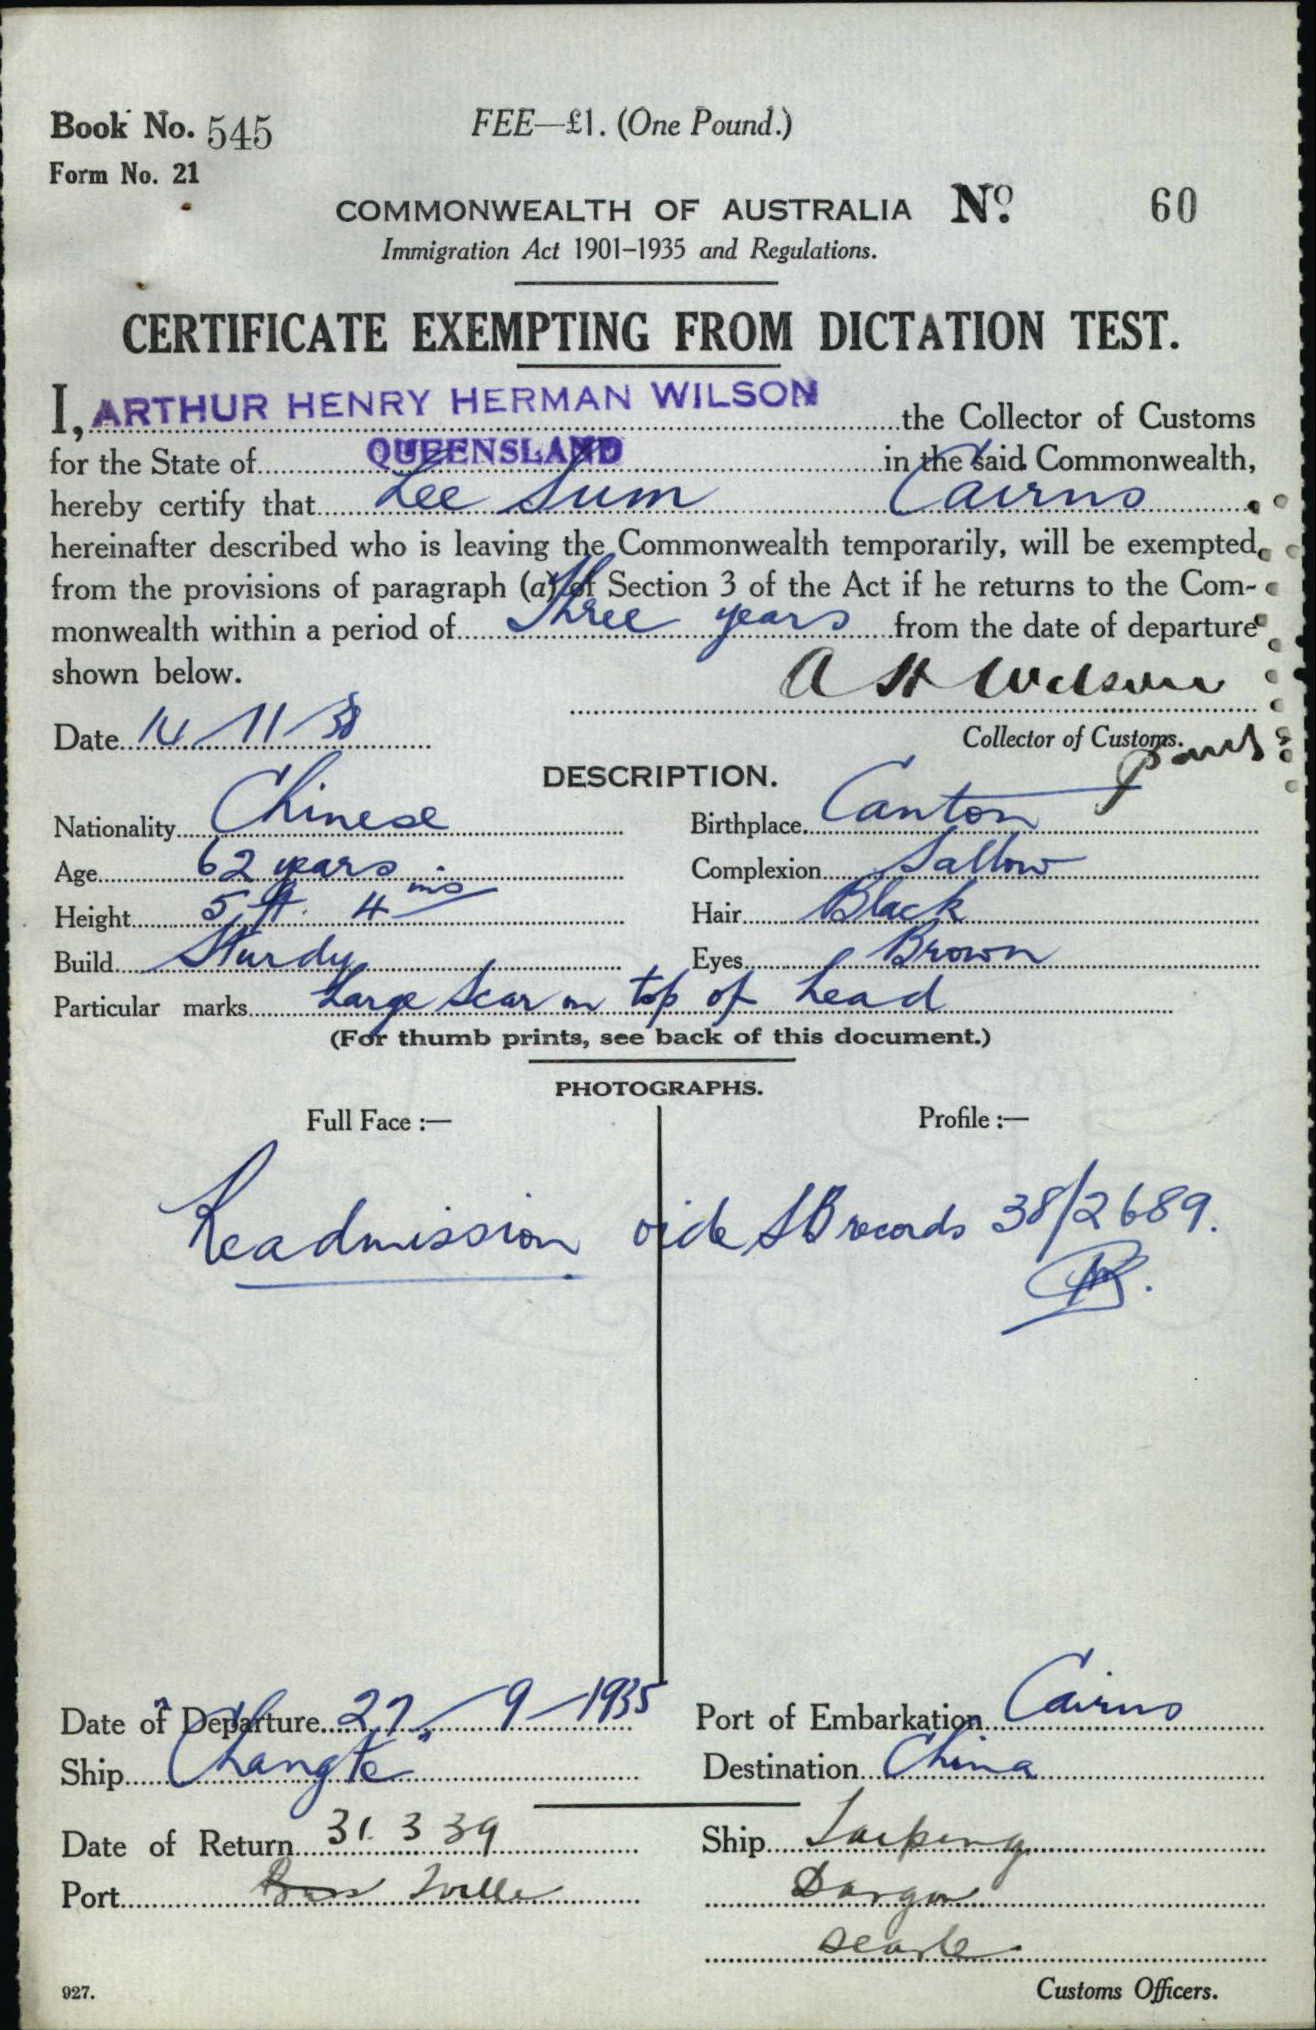 Book No. 545
FEE—£1. (One Pound.)
Form No. 21
COMMONWEALTH OF AUSTRALIA No. 60
Immigration Act 1901–1935 and Regulations.
CERTIFICATE EXEMPTING FROM DICTATION TEST.
I, ARTHUR HENRY HERMAN WILSON the Collector of Customs
for the State of QUEENSLAND in the said Commonwealth,
hereby certify that Lee Sum Cairns
hereinafter described who is leaving the Commonwealth temporarily, will be exempted
from the provisions of paragraph (a) of Section 3 of the Act if he returns to the Com-
monwealth within a period of Three years from the date of departure
shown below.
A H Wilson
Date 14/11/38
Collector of Customs.
DESCRIPTION.
Nationality Chinese Birthplace Canton
Age 62 years Complexion Sallow
Height 5 ft. 4 ins Hair Black
Build Sturdy Eyes Brown
Particular marks Large scar on top of head
(For thumb prints, see back of this document.)
PHOTOGRAPHS.
Full Face :— Profile :—
Readmission vide SB records 38/2689.
Date of Departure 27–9–1935 Port of Embarkation Cairns
Ship "Changte" Destination China
Date of Return 31 3 39 Ship Taiping
Port Bris Tville Dargon
Searle
927. Customs Officers.